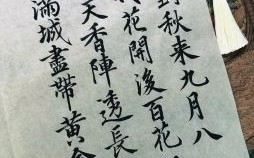 到秋来九月八
花開後百花
天香陣透長
滿城盡帶黃金